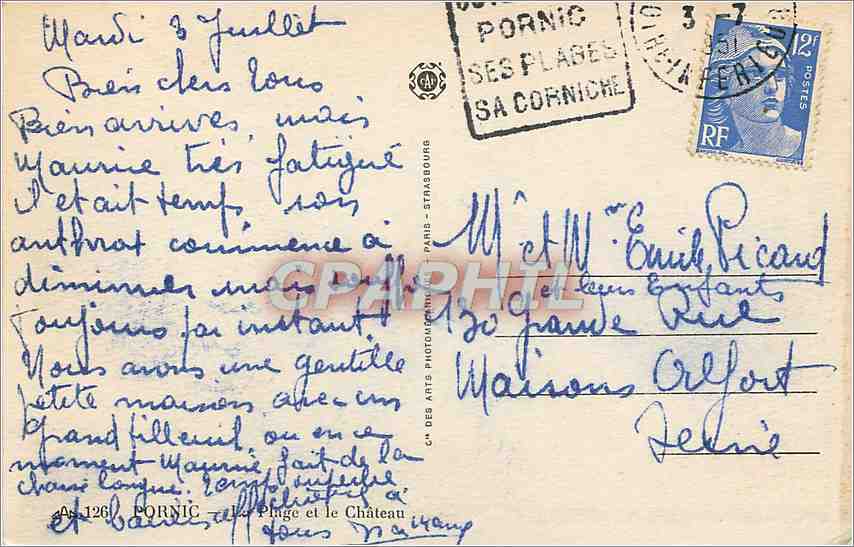 Mardi 3 Juillet
Bien chers tous
Bien arrivés, mais
Maurice très fatigué
il etait temps son
anthrax commence à
diminuer mais souffre
toujours par instant!
Nous avons une gentille
petite maison avec un
grand tilleul, ou en ce
moment Maurice fait de la
chaise longue. Temps superbe
et baisers affectueux à
tous
PORNIC
SES PLAGES
SA CORNICHE
3 -7
1951
INFERIEURE
12F
POSTES
RF
GAP
Mr et Me Emile Picard
et leurs Enfants
130 Grande Rue
Maisons Alfort
Seine
Cie DES ARTS PHOTOMÉCANIQUES - PARIS - STRASBOURG
CPAPHIL
A. 126 PORNIC — La Plage et le Château